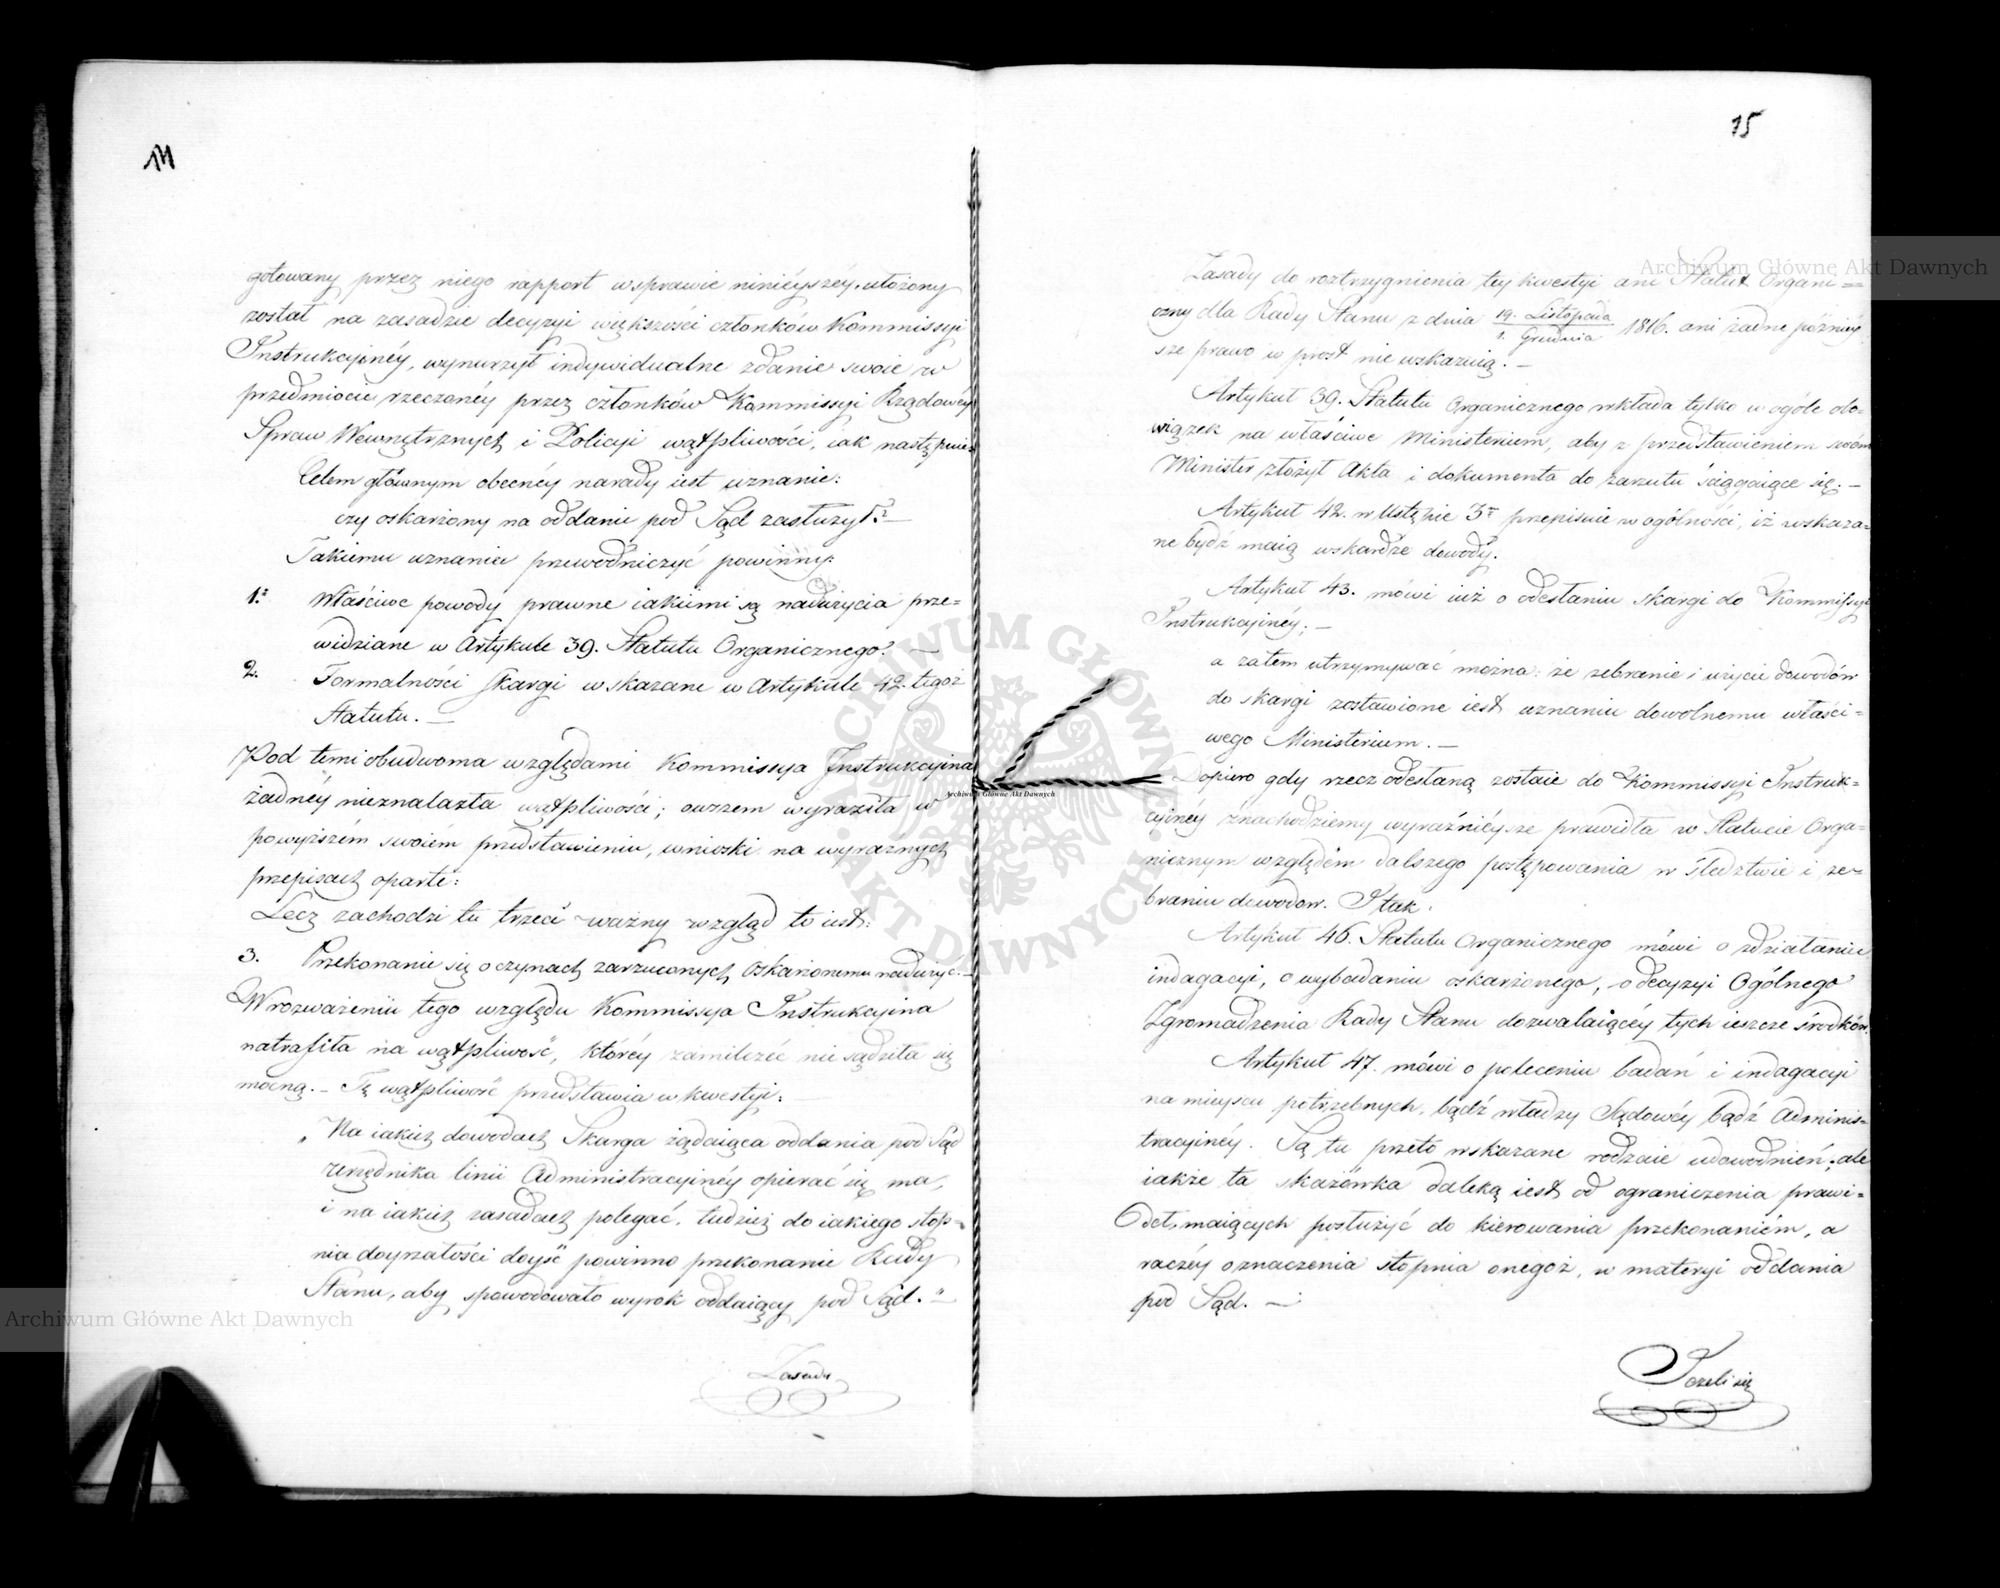 14
gotowany przez niego rapport w sprawie niniéyszéy ułożony
został na zasadzie decyzyi większości członków Kommissyi
Instrukcyinéy, wynurzył indywidualne zdanie swoie w
przedmiocie rzeczonéy przez członków Kommissyi Rządowéy
Spraw Wewnętrznych i Policyi wątpliwości, iak następuie
Celem głównym obecnéy narady iest uznanie:
czy oskarżony na oddanie pod Sąd zasłużył?
Takiemu uznaniu przewodniczyć powinny:
1. Właściwe powody prawne iakiemi są nadużycia prze=
widziane w Artykule 39. Statutu Organicznego. —
2. Formalności Skargi wskazane w Artykule 42. tegoż
Statutu. —
Pod temi obudwoma względami Kommissya Instrukcyina
żadnéy nieznalazła wątpliwości; owszem wyraziła w
powyższém swoiém przedstawieniu, wnioski na wyraźnych
przepisach oparte:
Lecz zachodzi tu trzeci ważny wzgląd to iest:
3. Przekonanie się o czynach zarzuconych Oskarżonemu nadużyć. —
W rozważeniu tego względu Kommissya Instrukcyina
natrafiła na wątpliwość, któréy zamilczéć nie sądziła się
mocną. — Tę wątpliwość przedstawia w kwestyi: —
„Na iakich dowodach Skarga żądaiąca oddania pod Sąd
urzędnika linii Administracyinéy opierać się ma,
i na iakich zasadach polegać, tudzież do iakiego stop=
nia doyrzałości doyść powinno przekonanie Rady
Stanu, aby spowodowało wyrok oddaiący pod Sąd." —
Zasady
15
Zasady do roztrzygnienia téy kwestyi ani Statut Organi=
czny dla Rady Stanu z dnia 19. Listopada / 1. Grudnia 1816. ani żadne późniéy
sze prawo w prost nie wskazuią. —
Artykuł 39. Statutu Organicznego wkłada tylko w ogóle obo=
wiązek na właściwe Ministerium, aby z przedstawieniem swém
Minister złożył Akta i dokumenta do zarzutu ściągaiące się. —
Artykuł 42. w Ustępie 3 przepisuie w ogólności, iż wskaza=
ne bydź maią w skardze dowody.
Artykuł 43. mówi iuż o odesłaniu skargi do Kommissyi
Instrukcyinéy; —
a zatem utrzymywać można: że zebranie i użycie dowodów
do skargi zostawione iest uznaniu dowolnemu właści=
wego Ministerium. —
Dopiero gdy rzecz odesłaną zostaie do Kommissyi Instruk=
cyinéy znachodziemy wyraźniéysze prawidła w Statucie Orga=
nicznym względém dalszego postępowania w śledztwie i ze=
braniu dowodów. I tak.
Artykuł 46. Statutu Organicznego mówi o zdziałaniu
indagacyi, o wybadaniu oskarżonego, o decyzyi Ogólnego
Zgromadzenia Rady Stanu dozwalaiącéy tych ieszcze środków.
Artykuł 47. mówi o poleceniu badań i indagacyi
na mieyscu potrzebnych, bądź władzy Sądowéy bądź Adminis=
tracyinéy. Są tu przeto wskazane rodzaie udowodnień; ale
iakże ta skazówka daleką iest od ograniczenia prawi=
deł, maiących posłużyć do kierowania przekonaniém, a
raczéy oznaczenia stopnia onegoż, w materyi oddania
pod Sąd. —
Jeżeli się
Archiwum Główne Akt Dawnych
Archiwum Główne Akt Dawnych
Archiwum Główne Akt Dawnych
ARCHIWUM GŁÓWNE AKT DAWNYCH